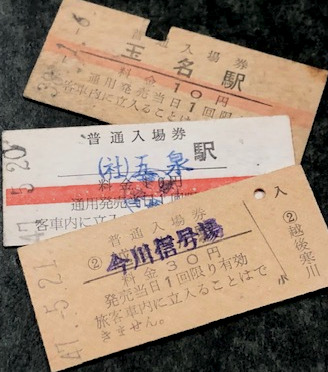 普通入場券
玉名駅
料金10円
通用発売当日1回
客車内に立入ることは
普通入場券
(社)五泉駅
通用発売
客車内に立入
47.5.20
普通入場券
② 今川信号場
料金30円
発売当日1回限り有効
旅客車内に立入ることはで
きません。
47.5.21
入
②
越後寒川
小